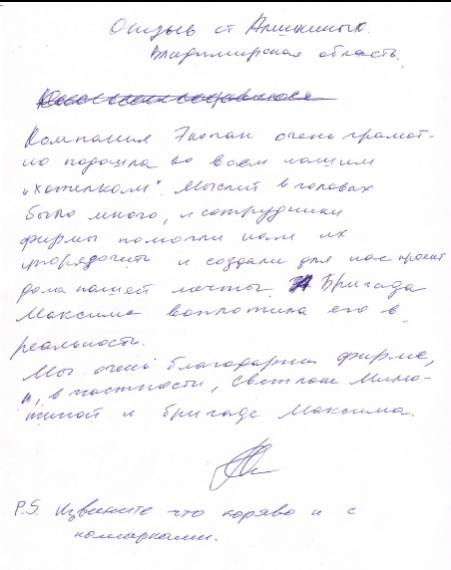 Отзыв от Алешкиных.
Владимирская область.
Компания Экопан очень грамот-
но подошла ко всем нашим
"хотелкам". Мыслей в головах
было много, и сотрудники
фирмы помогли нам их
упорядочить и создали для нас проект
дома нашей мечты. Бригада
Максима воплотила его в
реальность.
Мы очень благодарны фирме,
и, в частности, Светлане
и бригаде Максима.
P.S. Извините что коряво и с
помарками.